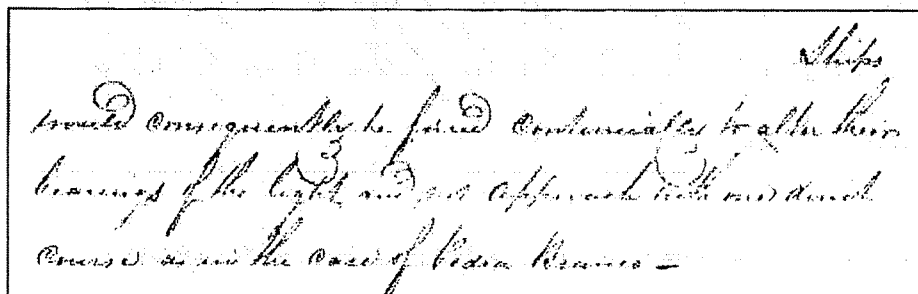 Ships
would consequently be forced continually to alter their
bearings of the light and not approach with one direct
course as in the case of Pedra Branca –